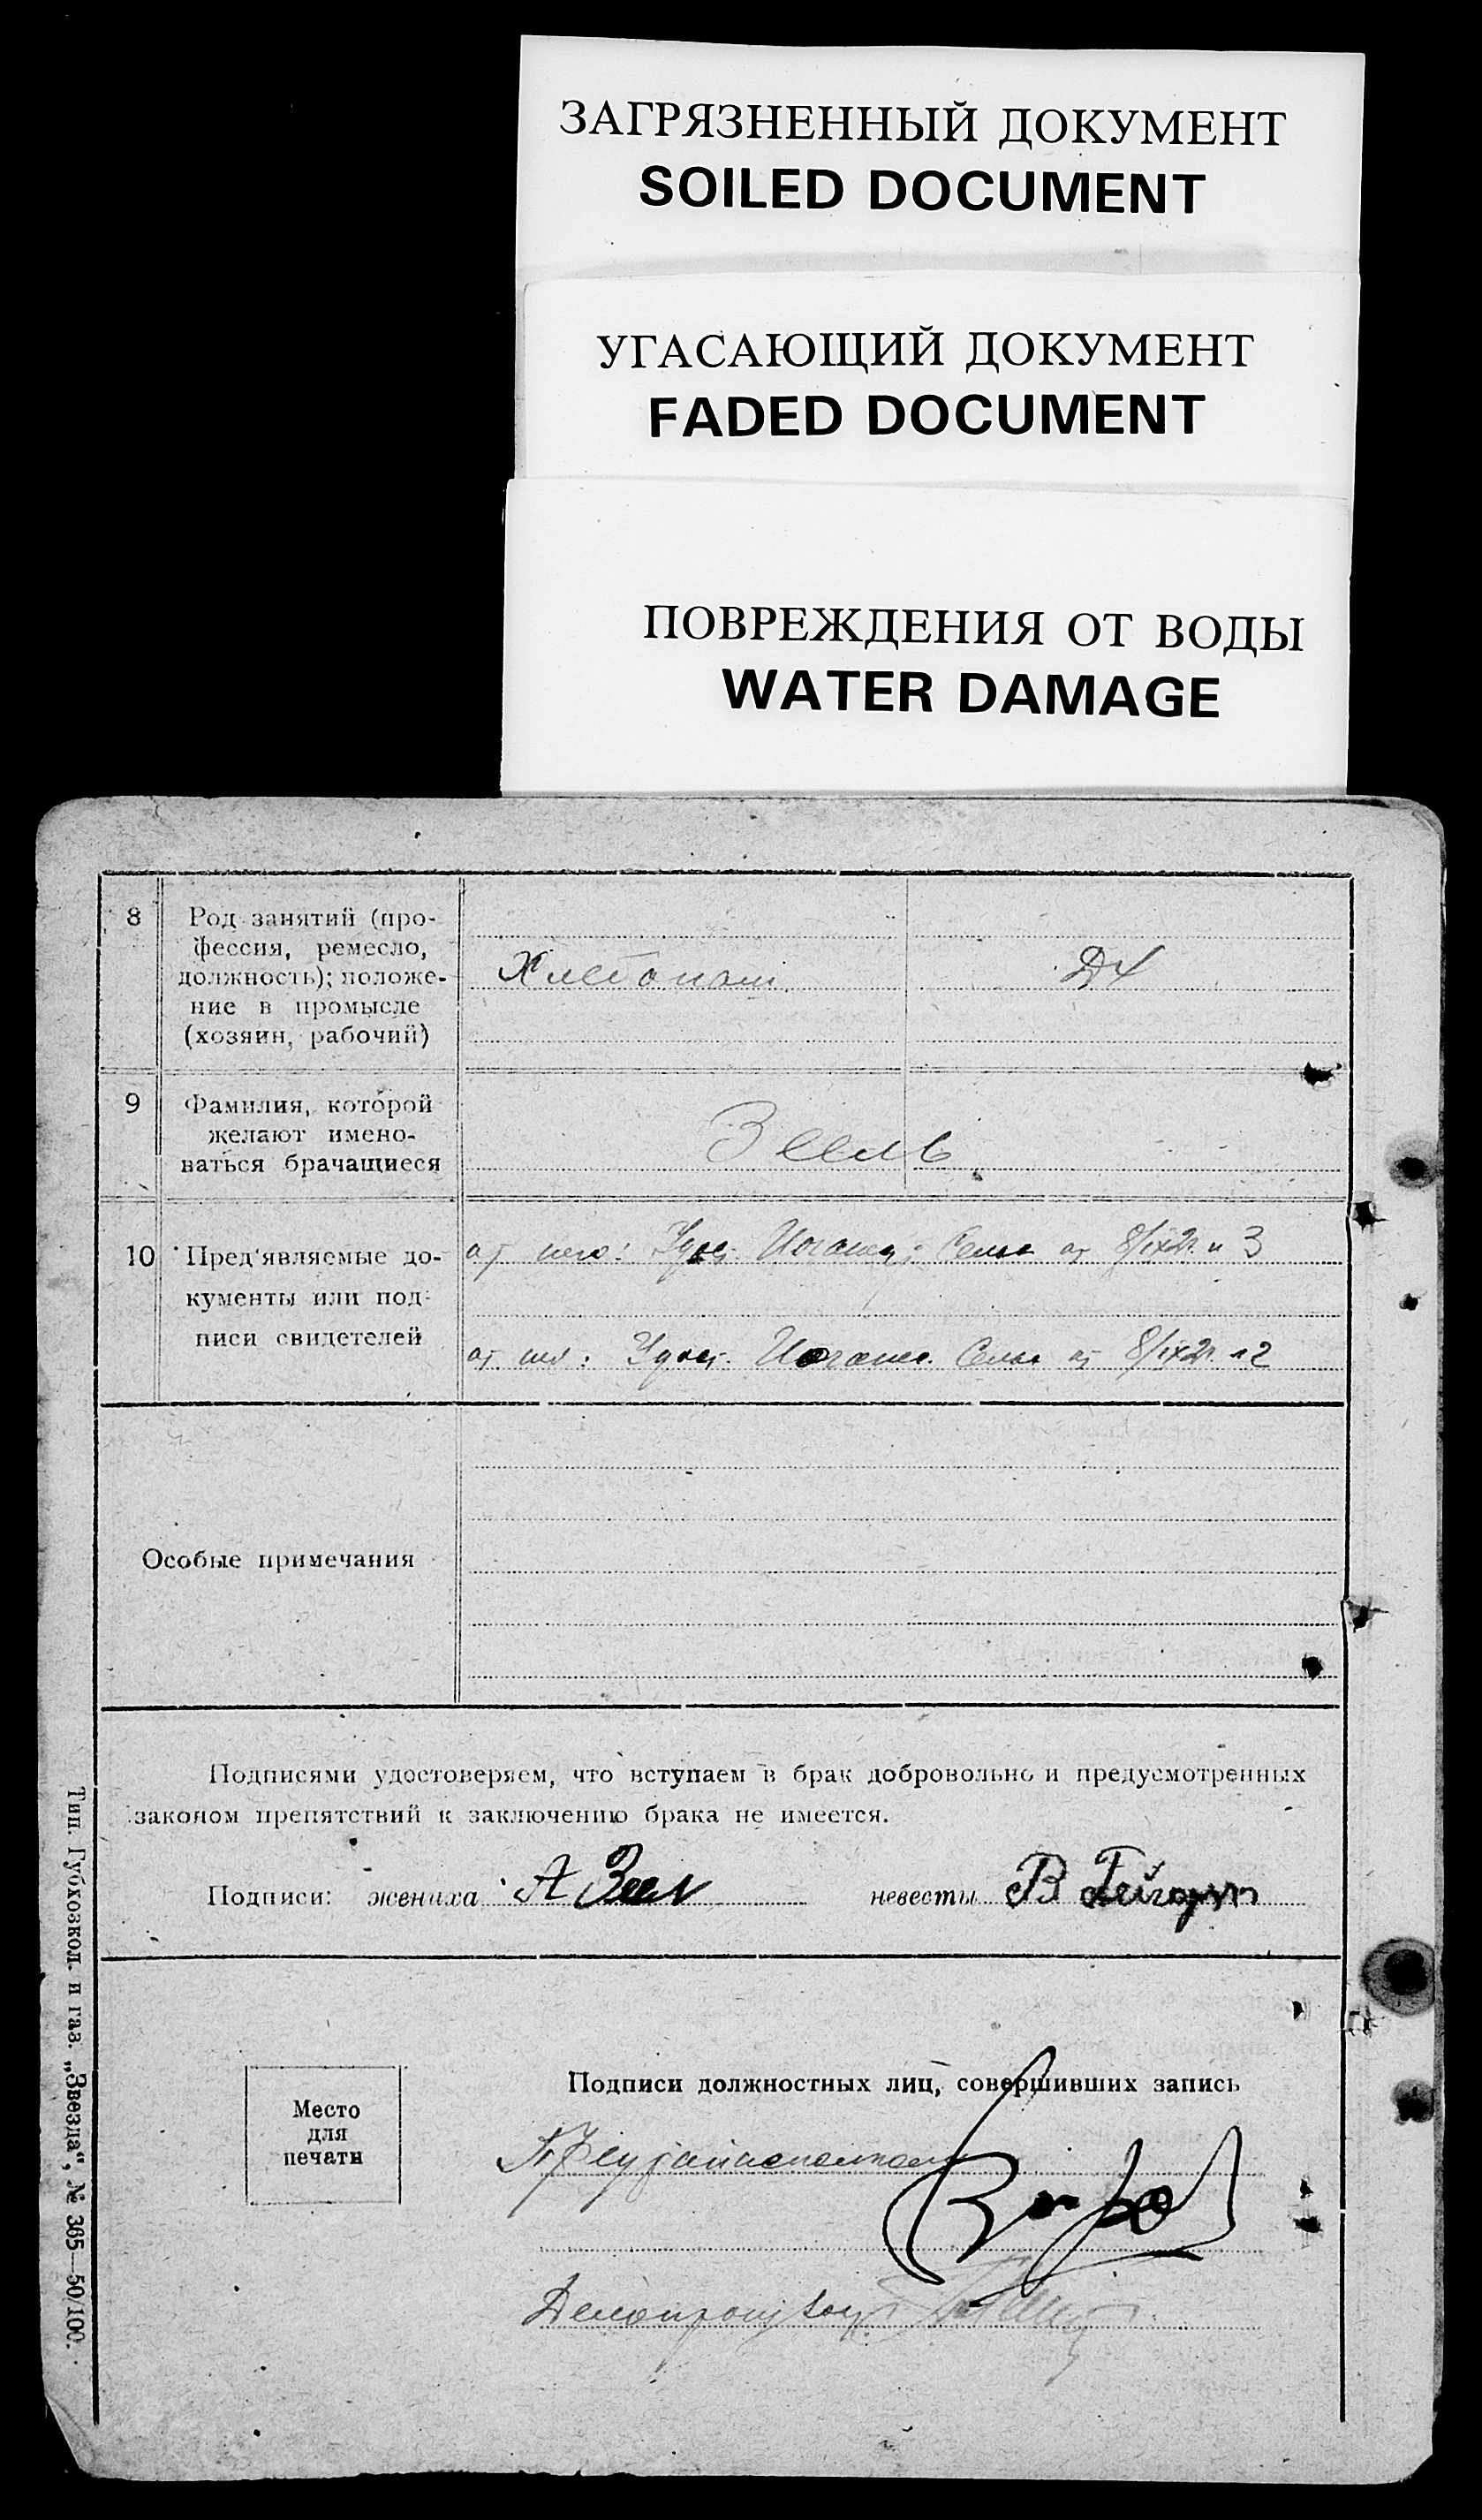 ЗАГРЯЗНЕННЫЙ ДОКУМЕНТ
SOILED DOCUMENT
УГАСАЮЩИЙ ДОКУМЕНТ
FADED DOCUMENT
ПОВРЕЖДЕНИЯ ОТ ВОДЫ
WATER DAMAGE
8 Род занятий (про-
фессия, ремесло,
должность); положе-
ние в промысле
(хозяин, рабочий)
Хлебопаш. ДХ
9 Фамилия, которой
желают имено-
ваться брачащиеся
Зеель
10 Пред'являемые до-
кументы или под-
писи свидетелей
от него: Удост. Сельс от 8/IX2 3
от нее: Удост. Сельс от 8/IX2 2
Особые примечания
Подписями удостоверяем, что вступаем в брак добровольно и предусмотренных
законом препятствий к заключению брака не имеется.
Подписи: жениха А Зеел невесты В
Место
для
печати
Подписи должностных лиц, совершивших запись
Тип. Губхозкол. и газ. „Звезда“, № 365—50/100.